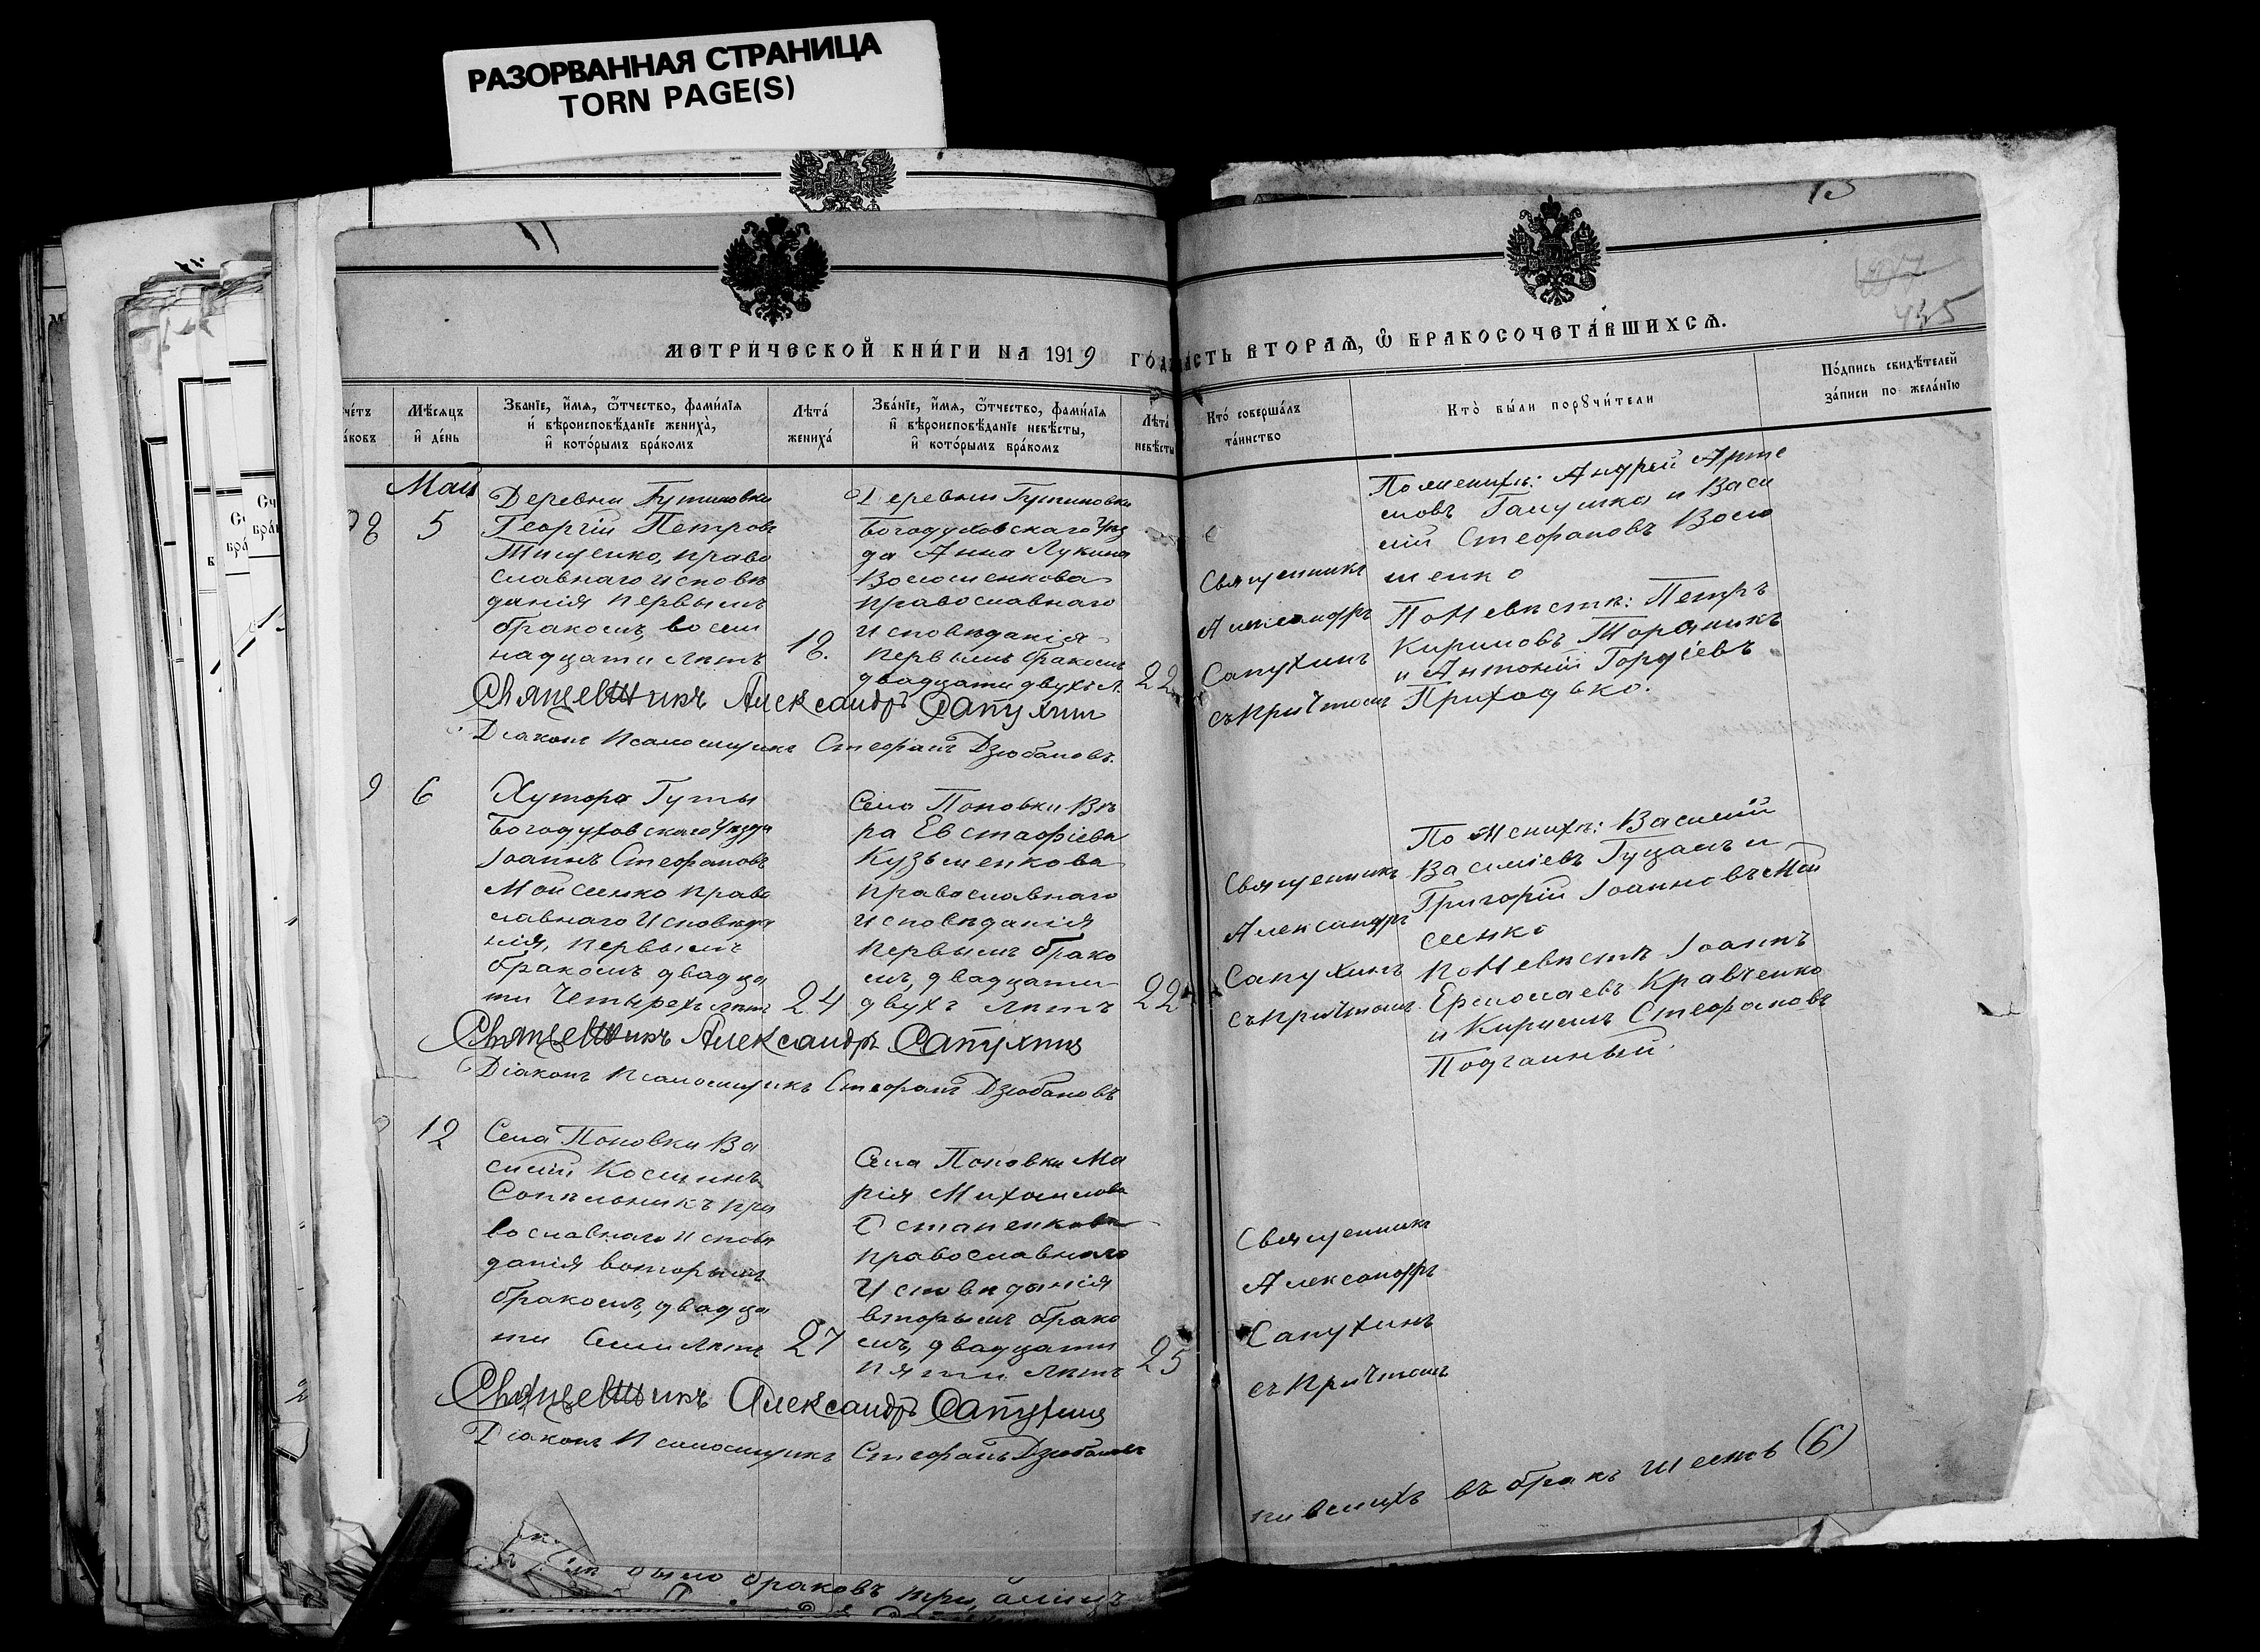 РАЗОРВАННАЯ СТРАНИЦА
TORN PAGE(S)
МЕТРИЧЕСКОЙ КНИГИ НА 1919 ГОДЪ
ЧАСТЬ ВТОРАѦ, Ѽ БРАКОСОЧЕТАВШИХСѦ.
435
Мѣсѧцъ и день
Званїе, имѧ, ѿчество, фамилїѧ и вѣроисповѣданїе жениха, и которымъ бракомъ
Лѣта жениха
Званїе, имѧ, ѿчество, фамилїѧ и вѣроисповѣданїе невѣсты, и которымъ бракомъ
Лѣта невѣсты
Кто совершалъ таинство
Кто были порꙋчители
Подпись свидѣтелей записи по желанїю
Май
5
Деревни Гутиновки
Георгій Петровъ
Тищенко, право
славнаго исповѣ
данія первымъ
бракомъ, восем
надцати лѣтъ
18.
Деревни Гутиновки
Богодуховскаго Уѣз
да Анна Лукина
Волошенкова
православнаго
исповѣданія
первымъ бракомъ
двадцати двухъ л.
22
Священникъ
Александръ
Сапухинъ
съ причтомъ
По женихѣ: Андрей Арте
мовъ Галушка и Васи
лій Стефановъ Воло
шенко
По Невѣстѣ: Петръ
Кириловъ Тараникъ
и Антоній Гордіевъ
Приходько.
Священникъ Александръ Сапухинъ
Діаконъ Псаломщикъ Стефанъ Дзюбановъ.
9
6
Хутора Гуты
Богодуховскаго Уѣзда
Іоаннъ Стефановъ
Мойсеенко право
славнаго Исповѣда
нія, первымъ
бракомъ двадца
ти четырехъ лѣтъ
24
Села Поповки Вѣ
ра Евстафіева
Кузьменкова
православнаго
исповѣданія
первымъ брако
мъ, двадцати
двухъ лѣтъ
22
Священникъ
Александръ
Сапухинъ
съ причтомъ
По Женихѣ: Василій
Василіевъ Гуцалъ и
Григорій Іоанновъ Мой
сеенко
По Невѣстѣ Іоаннъ
Ермолаевъ Кравченко
и Кирилъ Стефановъ
Подгаиный.
Священникъ Александръ Сапухинъ
Діаконъ Псаломщикъ Стефанъ Дзюбановъ
12
Села Поповки Ва
силій Косминъ
Сопѣльникъ пра
вославнаго исповѣ
данія вторымъ
бракомъ, двадца
ти семи лѣтъ
27
Села Поповки Ма
рія Михаилова
Остапенкова
православнаго
Исповѣданія
вторымъ брако
мъ, двадцати
пяти лѣтъ
25
Священникъ
Александръ
Сапухинъ
съ причтомъ
Священникъ Александръ Сапухинъ
Діаконъ Псаломщикъ Стефанъ Дзюбановъ
было браковъ три, а лицъ
въ бракъ шесть (6)